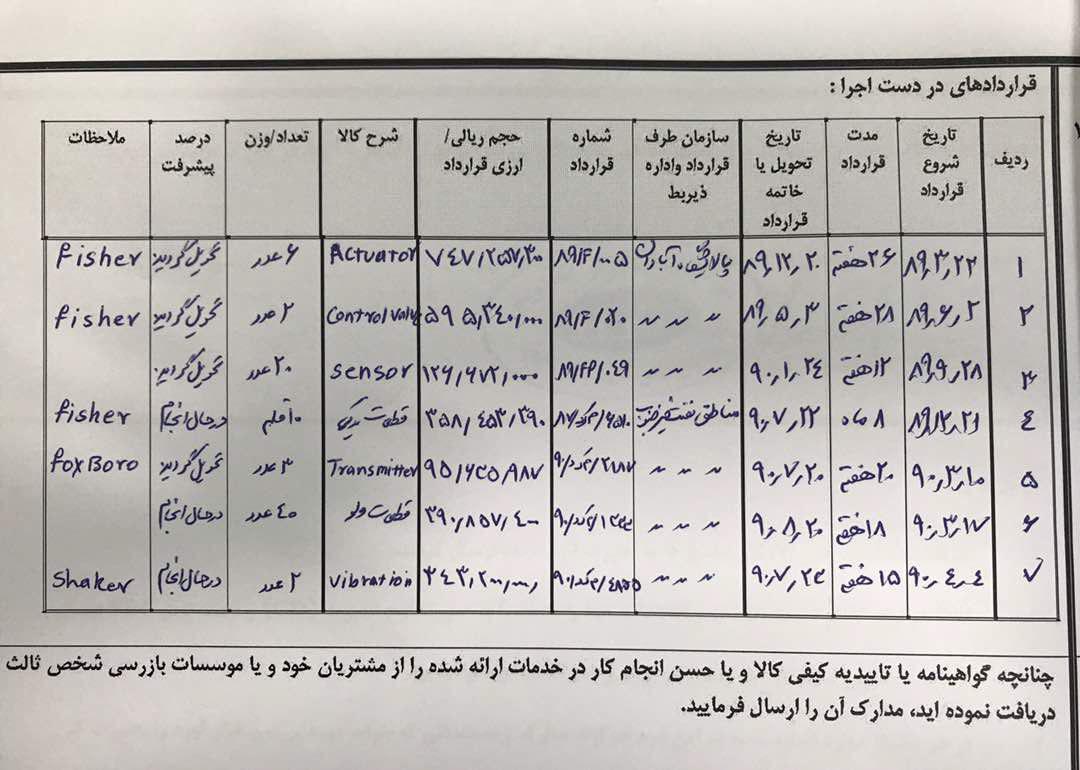 قراردادهای در دست اجرا :
ردیف تاریخ شروع قرارداد مدت قرارداد تاریخ تحویل یا خاتمه قرارداد سازمان طرف قرارداد واداره ذیربط شماره قرارداد حجم ریالی/ ارزی قرارداد شرح کالا تعداد/وزن درصد پیشرفت ملاحظات
۱ ۸۹,۳,۲۲ ۲۶ هفته ۸۹,۱۲,۲۰ پالایشگاه آبادان ۸۹/۴/۰۰۵ Actuator ۶ عدد تحویل گردید fisher
۲ ۸۹,۶,۲ ۲۸ هفته ۸۹,۵,۳ 〃 〃 〃 ۸۹/۴/۰۲۰ ۵۹۵,۳۴۰,۰۰۰ Control valve ۲ عدد تحویل گردید fisher
۳ ۸۹,۹,۲۸ ۱۲ هفته ۹۰,۱,۲۴ 〃 〃 〃 ۱۲۶,۶۷۲,۰۰۰ Sensor ۲۰ عدد تحویل گردید
٤ ۸۹,۱۲,۲۱ ۸ ماه ۹۰,۷,۲۲ مناطق نفت خیز جنوب ۳۵۸,۴۵۳,۳۹۰ قطعات یدکی ۱۰ قلم درحال انجام fisher
۵ ۹۰,۳,۱۰ ۲۰ هفته ۹۰,۷,۲۰ 〃 〃 〃 ۹۵,۶۲۵,۹۸۷ Transmitter ۳ عدد تحویل گردید foxBoro
۶ ۹۰,۳,۱۷ ۱۸ هفته ۹۰,۸,۲۰ 〃 〃 〃 ۳۹۰,۸۵۷,۴۰۰ قطعات ولو ۴۰ عدد درحال انجام
۷ ۹۰,۴,۰۴ ۱۵ هفته ۹۰,۷,۲۳ 〃 〃 〃 ۳۴۳,۲۰۰,۰۰۰ Vibration ۲ عدد درحال انجام Shaker
چنانچه گواهینامه یا تاییدیه کیفی کالا و یا حسن انجام کار در خدمات ارائه شده را از مشتریان خود و یا موسسات بازرسی شخص ثالث
دریافت نموده اید، مدارک آن را ارسال فرمایید.